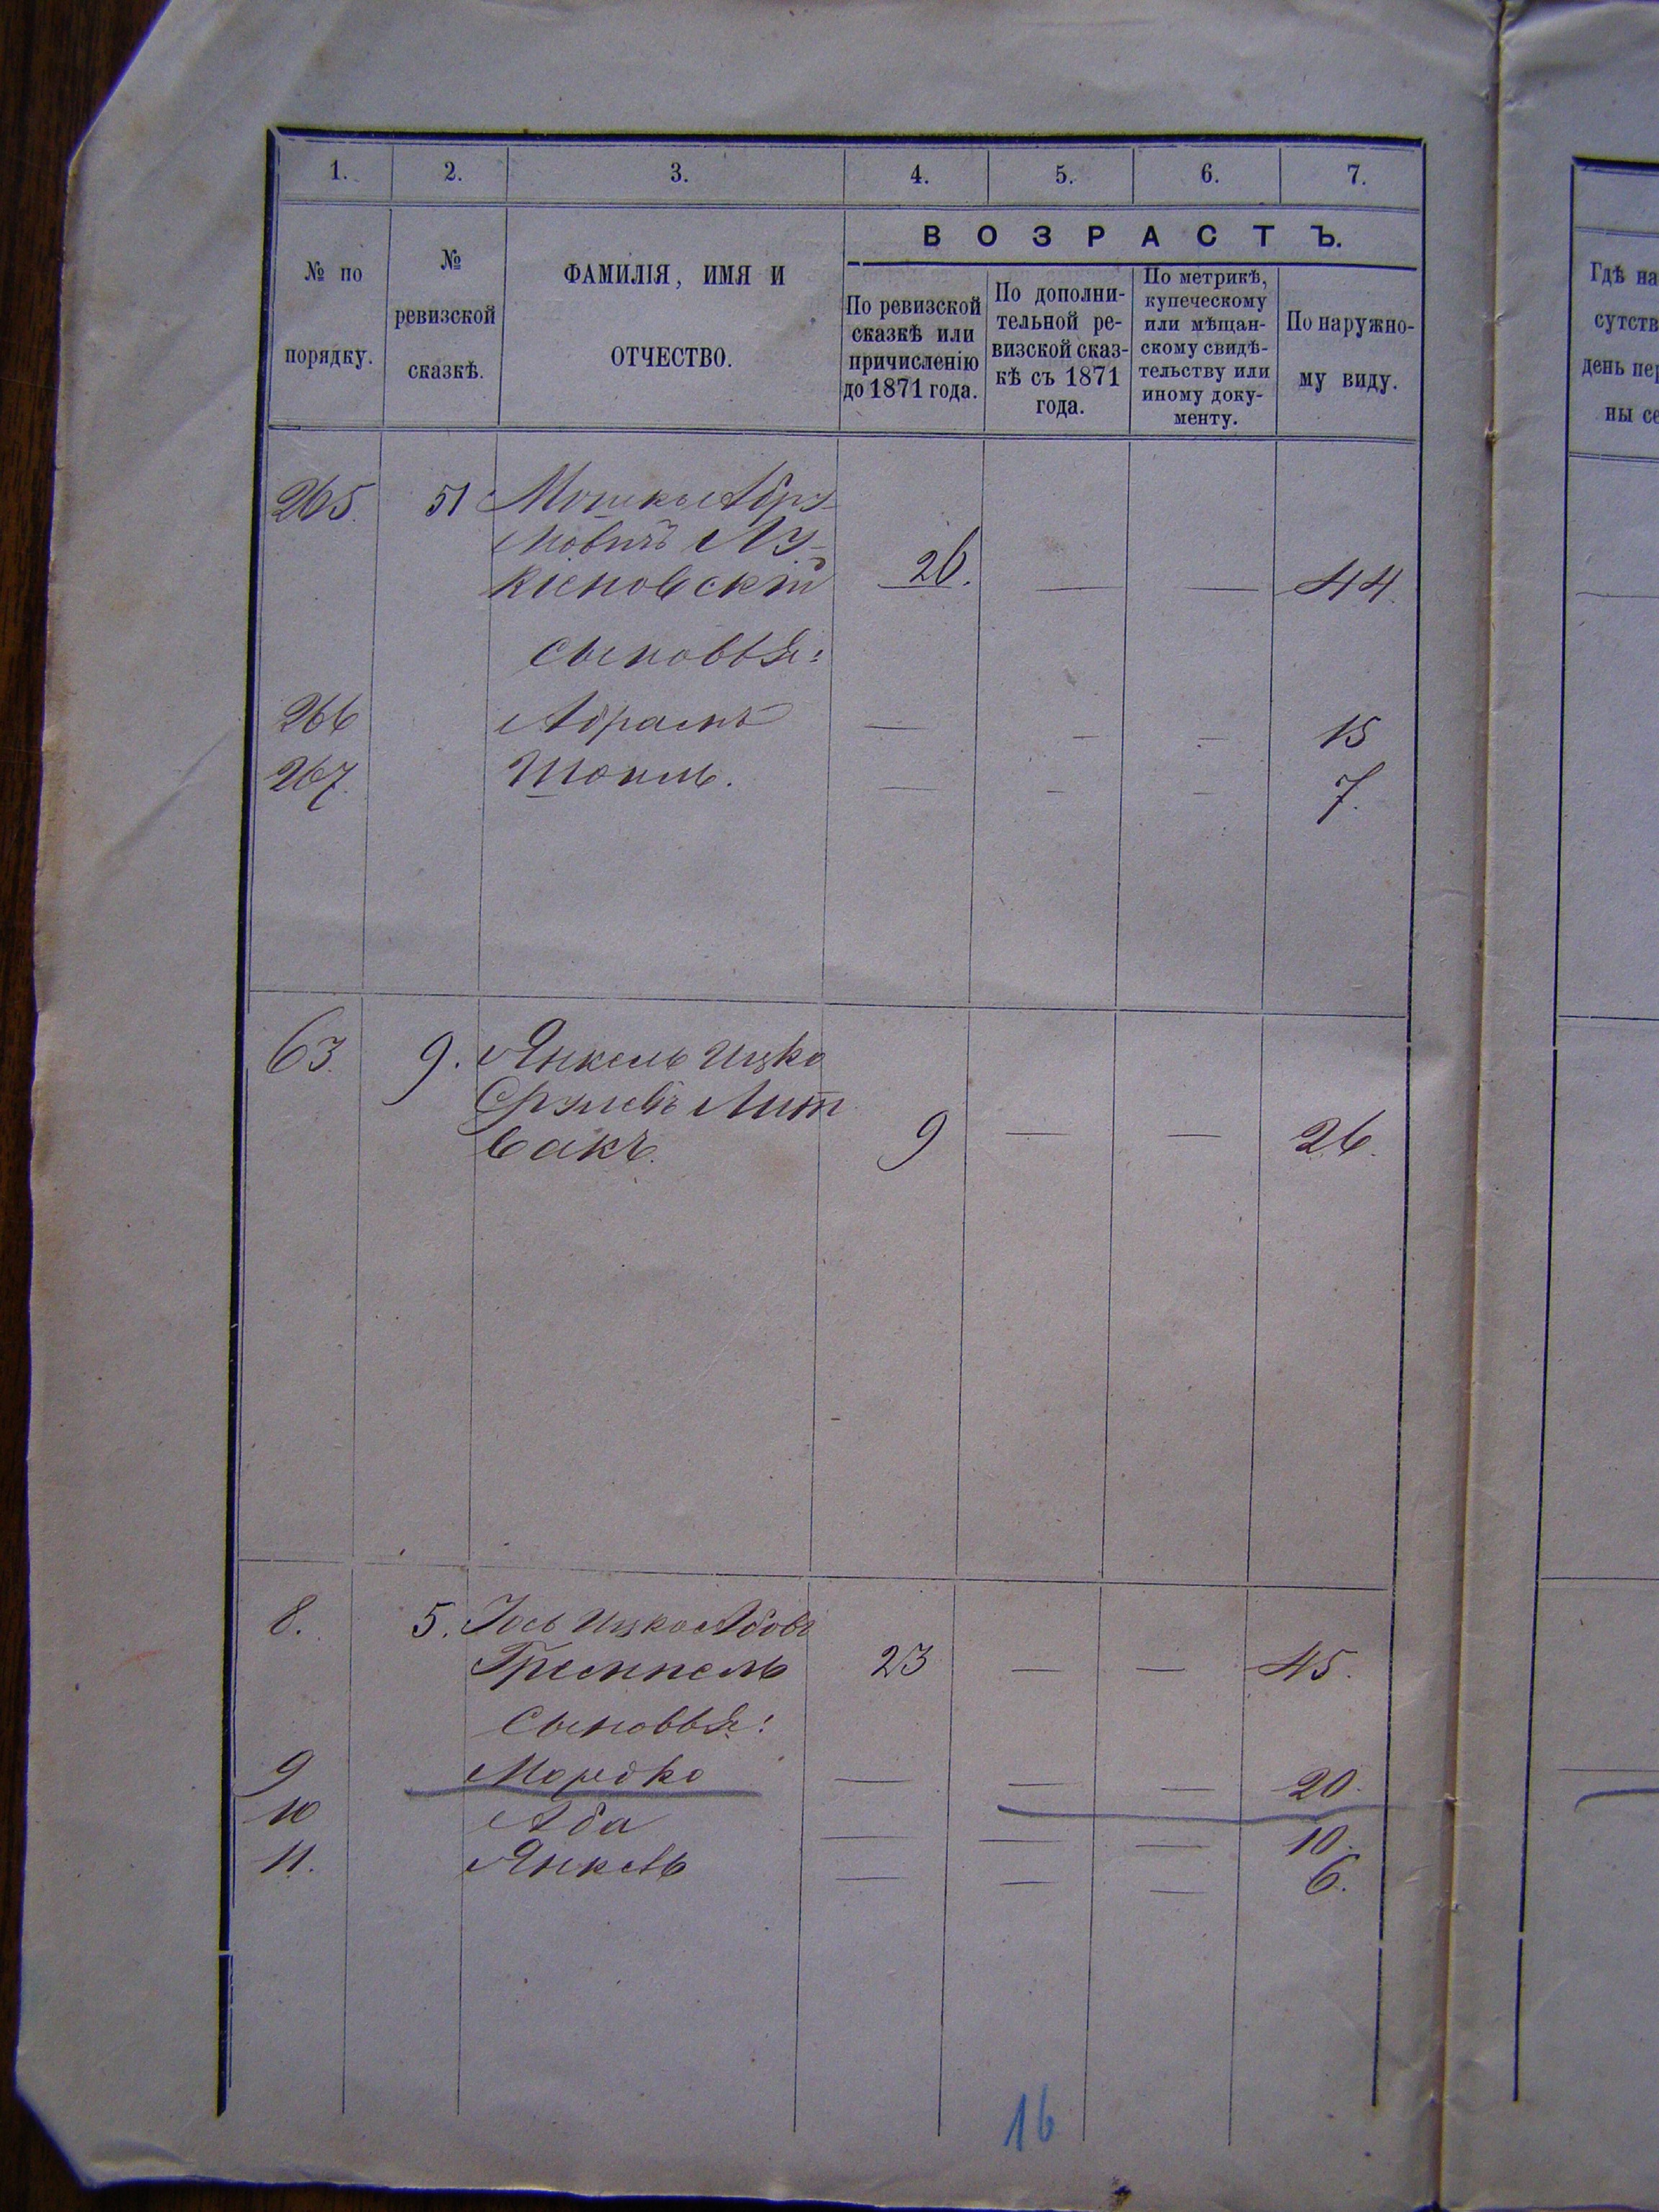 1. 2. 3. 4. 5. 6. 7.
№ по порядку.
№ ревизской сказкѣ.
ФАМИЛІЯ, ИМЯ И ОТЧЕСТВО.
ВОЗРАСТЪ.
По ревизской сказкѣ или причисленію до 1871 года.
По дополни-
тельной ре-
визской сказ-
кѣ съ 1871
года.
По метрикѣ,
купеческому
или мѣщан-
скому свидѣ-
тельству или
иному доку-
менту.
По наружно-
му виду.
Гдѣ на
сутств
день пер
ны се
265. 51 Мошко Абра-
мовичъ
26. — — 44.
сыновья:
266 Абрамъ — — — 15
267. — — — 7.
63. 9. Янкель Ицко
Срулевъ Лит
вакъ. 9 — — 26.
8. 5. Іось Ицко Абовъ
Гремпель 23 — — 45.
Сыновья:
9 Мордко — — — 20.
10 Аба — — — 10.
11. Янкель — — — 6.
16